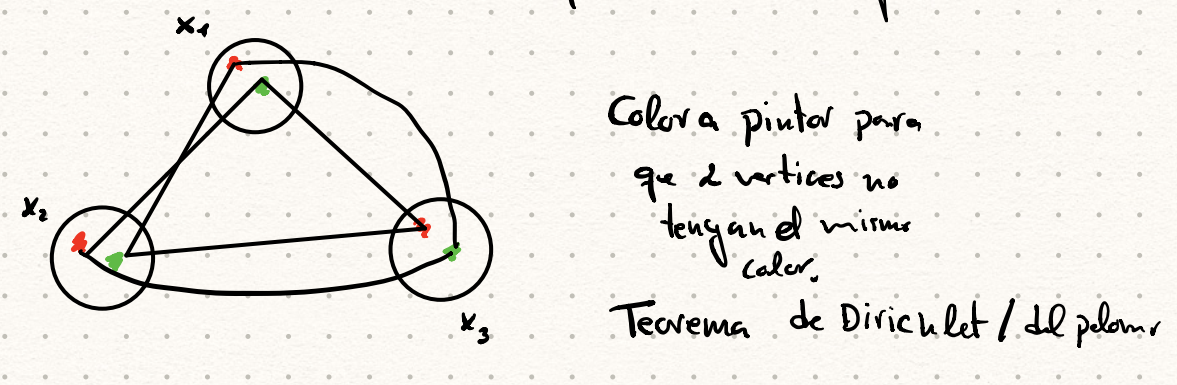 x₁
x₂
x₃
Color a pintar para
que 2 vertices no
tengan el mismo
color.
Teorema de Dirichlet / del palomar